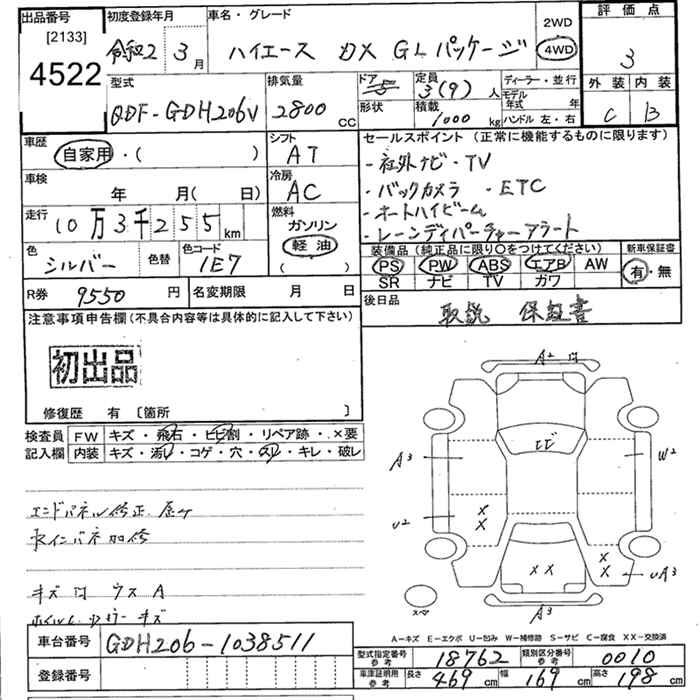 出品番号
[2133]
4522
初度登録年月
令和2 3月
車名・グレード
ハイエース DX GLパッケージ
2WD
4WD
評価点
3
外装 内装
C B
型式
QDF-GDH206V
排気量
2800 CC
ドア
5
形状
定員
3(9)人
積載
1000 kg
ディーラー・並行
モデル年式 年
ハンドル 左・右
車歴
自家用・( )
シフト
AT
車検
年 月( 日)
冷房
AC
走行
10万3千255km
燃料
ガソリン
軽油
( )
色
シルバー
色替
色コード
1E7
セールスポイント(正常に機能するものに限ります)
・社外ナビ・TV
・バックカメラ ・ETC
・オートハイビーム
・レーンディパーチャーアラート
装備品(純正品に限り〇をつけてください)
PS PW ABS エアB AW
SR ナビ TV カワ
新車保証書
有・無
R券 9550 円
名変期限 月 日
後日品
取説 保証書
注意事項申告欄(不具合内容等は具体的に記入して下さい)
初出品
修復歴 有 〔箇所 〕
検査員記入欄
FW キズ・飛石・ヒビ割・リペア跡・×要
内装 キズ・汚レ・コゲ・穴・スレ・キレ・破レ
エンドパネル修正
キズ凹 ウスA
車台番号 GDH206-1038511
登録番号
A2 凹
ヒビ
A3
W2
U2
X
X
X X
X
X
UA3
A3
スペア
A-キズ E-エクボ U-凹み W-補修跡 S-サビ C-腐食 XX-交換済
型式指定番号 参考 18762
類別区分番号 参考 0010
車庫証明用 参考 長さ 469 cm 幅 169 cm 高さ 198 cm